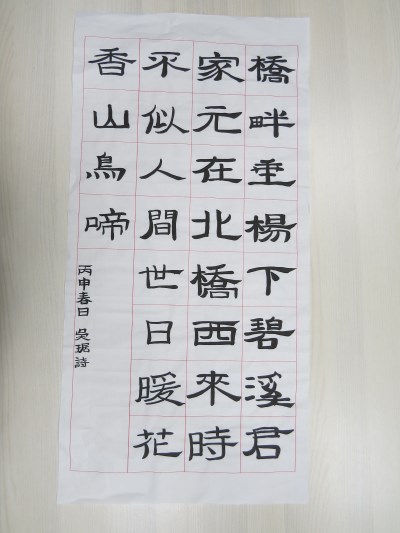 橋畔垂楊下碧溪君
家元在北橋西來時
不似人間世日暖花
香山鳥啼
丙申春日 吳琚詩